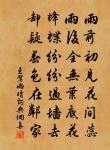 雨前初見花間蕊
雨後全無葉底花
蜂蝶紛紛過牆去
却疑春色在鄰家
王駕雨晴詞典網書